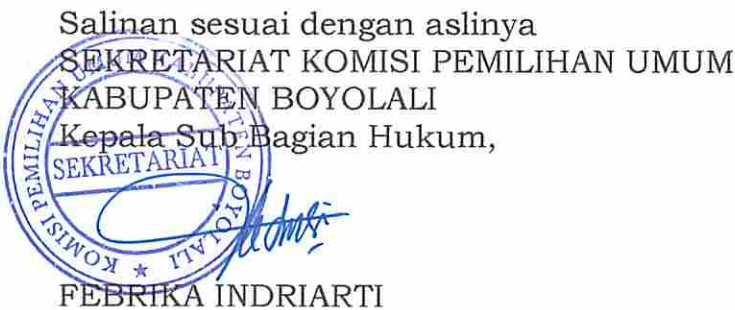 Salinan sesuai dengan aslinya
SEKRETARIAT KOMISI PEMILIHAN UMUM
KABUPATEN BOYOLALI
Kepala Sub Bagian Hukum,
KOMISI PEMILIHAN UMUM KABUPATEN BOYOLALI
SEKRETARIAT
FEBRIKA INDRIARTI